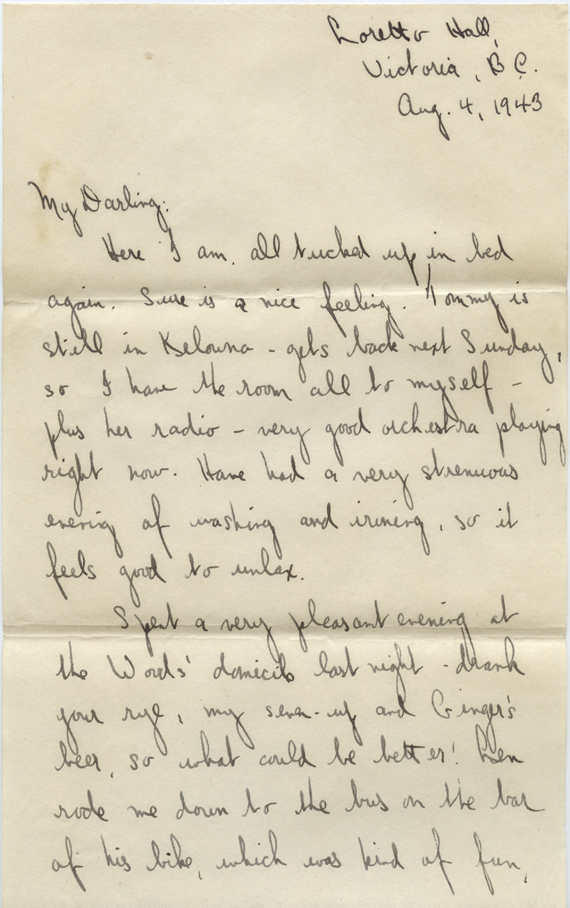 Loretto Hall,
Victoria, B.C.
Aug. 4, 1943
My Darling:
Here I am, all tucked up in bed
again. Sure is a nice feeling. Tommy is
still in Kelowna - gets back next Sunday,
so I have the room all to myself -
plus her radio - very good orchestra playing
right now. Have had a very strenuous
evening of washing and ironing, so it
feels good to unlax.
Spent a very pleasant evening at
the Woods' domicile last night - drank
your rye, my seven-up and Ginger's
beer, so what could be better! Len
rode me down to the bus on the bar
of his bike, which was kind of fun,